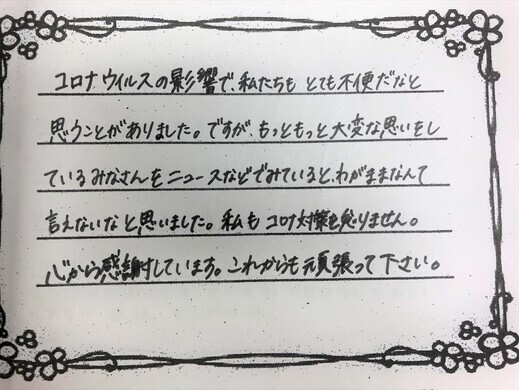 コロナウイルスの影響で、私たちも とても不便だなと
思うことがありました。ですが、もっともっと大変な思いをし
ているみなさんをニュースなどでみていると、わがままなんて
言えないなと思いました。私もコロナ対策を怠りません。
心から感謝しています。これからも頑張って下さい。